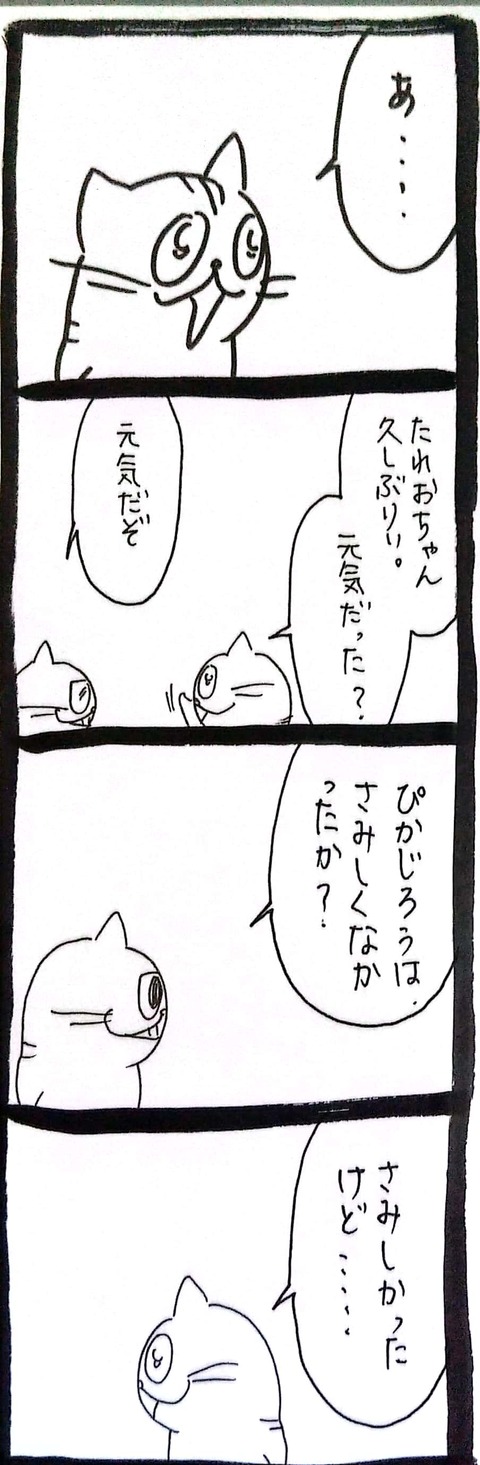 あ・・・・
たれおちゃん
久しぶりぃ。
元気だった？
元気だぞ
ぴかじろうは、
さみしくなか
ったか？
さみしかった
けど・・・・・